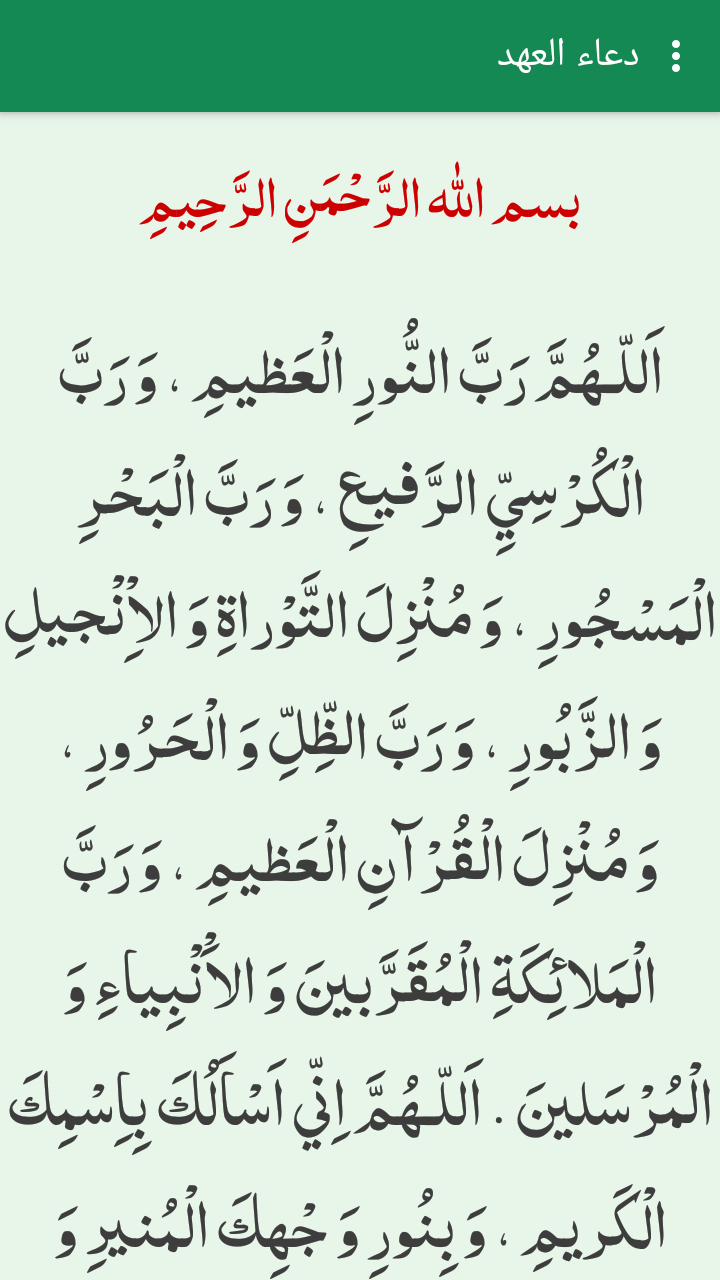 دعاء العهد
بسم الله الرَّحْمَنِ الرَّحِيمِ
اَللّـهُمَّ رَبَّ النُّورِ الْعَظيمِ ، وَ رَبَّ
الْكُرْسِيِّ الرَّفيعِ ، وَ رَبَّ الْبَحْرِ
الْمَسْجُورِ ، وَ مُنْزِلَ التَّوْراةِ وَ الاِْنْجيلِ
وَ الزَّبُورِ ، وَ رَبَّ الظِّلِّ وَ الْحَرُورِ ،
وَ مُنْزِلَ الْقُرْآنِ الْعَظيمِ ، وَ رَبَّ
الْمَلائِكَةِ الْمُقَرَّبينَ وَ الاَْنْبِياءِ وَ
الْمُرْسَلينَ . اَللّـهُمَّ اِنّي اَسْاَلُكَ بِاِسْمِكَ
الْكَريمِ ، وَ بِنُورِ وَجْهِكَ الْمُنيرِ وَ